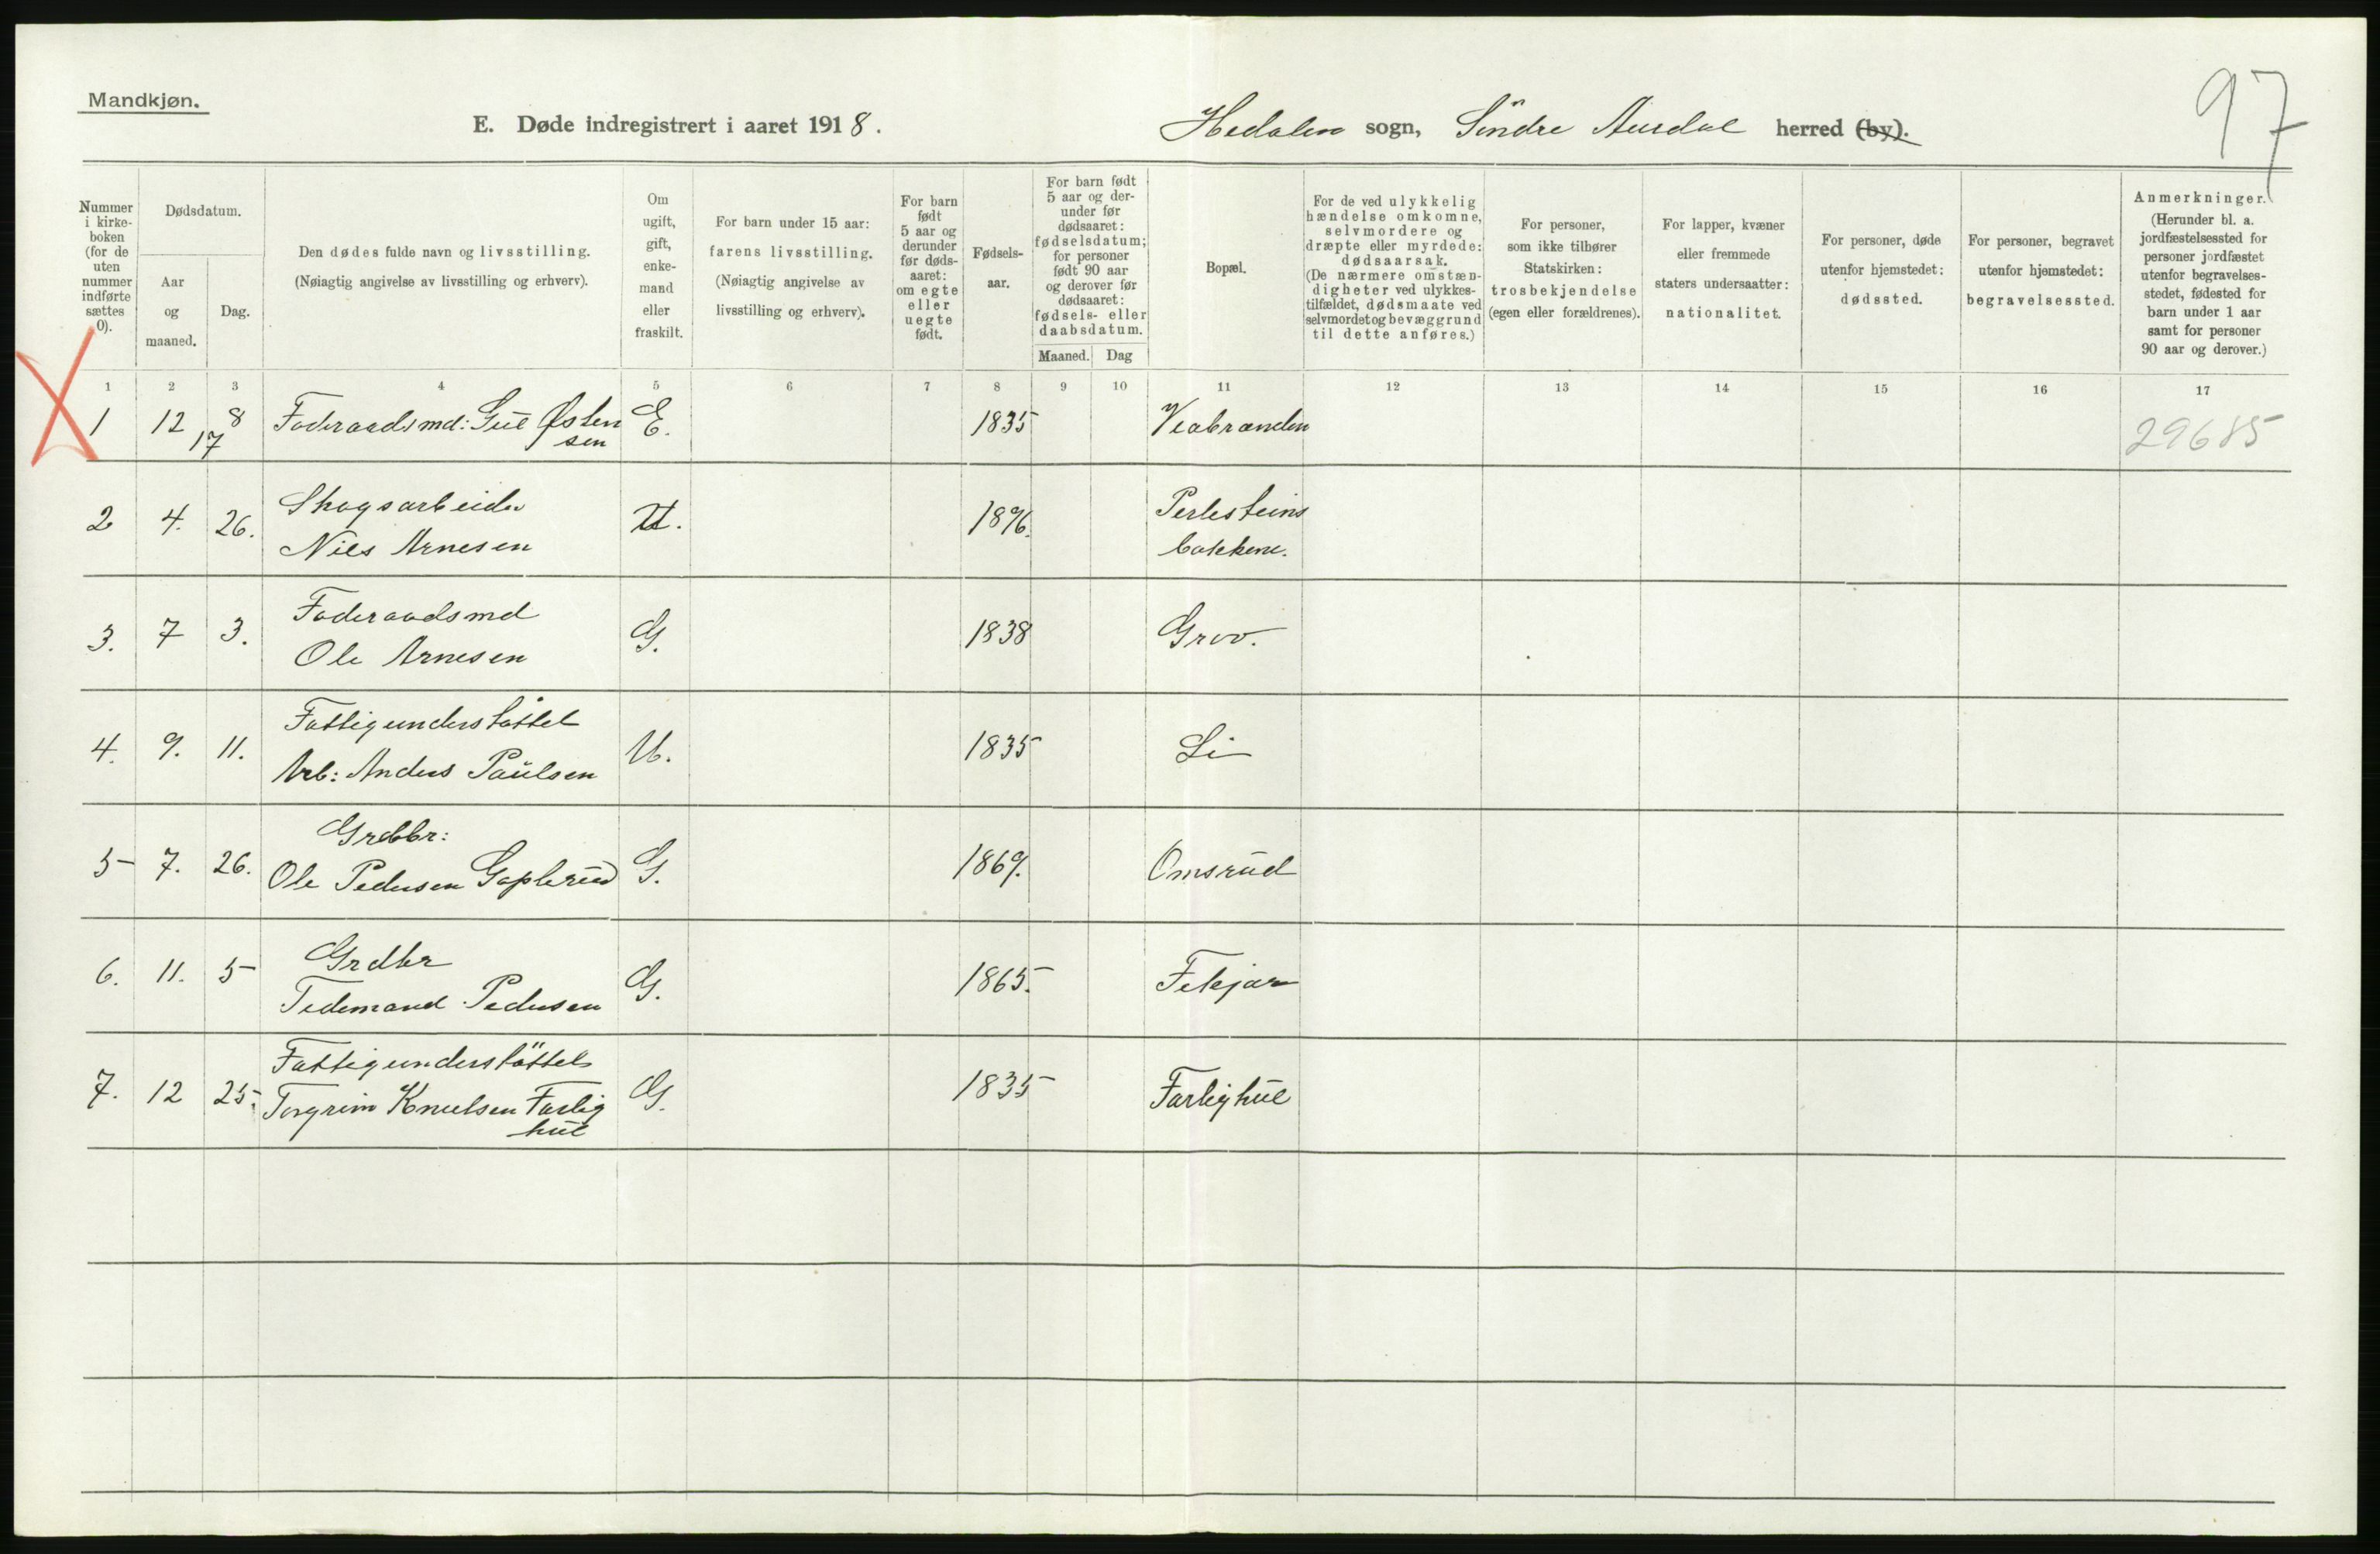 Mandkjøn.
97
E. Døde indregistrert i aaret 1918.
Hedalen sogn, Söndre Aurdal herred (by).
Nummer i kirke-boken (for de uten nummer indførte sættes 0).
Dødsdatum.
Aar og maaned.
Dag.
Den dødes fulde navn og livsstilling.
(Nøiagtig angivelse av livsstilling og erhverv).
Om ugift, gift, enke-mand eller fraskilt.
For barn under 15 aar: farens livsstilling.
(Nøiagtig angivelse av livsstilling og erhverv).
For barn født 5 aar og derunder før døds-aaret: om egte eller uegte født.
Fødsels-aar.
For barn født 5 aar og der-under før dødsaaret: fødselsdatum; for personer født 90 aar og derover før dødsaaret: fødsels- eller daabsdatum.
Maaned. Dag
Bopæl.
For de ved ulykkelig hændelse omkomne, selvmordere og dræpte eller myrdede: dødsaarsak.
(De nærmere omstæn-digheter ved ulykkes-tilfældet, dødsmaate ved selvmordet og bevæggrund til dette anføres.)
For personer, som ikke tilhører Statskirken: trosbekjendelse (egen eller forældrenes).
For lapper, kvæner eller fremmede staters undersaatter: nationalitet.
For personer, døde utenfor hjemstedet: dødssted.
For personer, begravet utenfor hjemstedet: begravelsessted.
Anmerkninger.
(Herunder bl. a. jordfæstelsessted for personer jordfæstet utenfor begravelses-stedet, fødested for barn under 1 aar samt for personer 90 aar og derover.)
1 2 3 4 5 6 7 8 9 10 11 12 13 14 15 16 17
1 12 8 Foderaadsmd: Gul Østen E. 1835 Veabraenden 29685
17 sen
2 4. 26. Skogsarbeider U. 1896. Perlesteins
Nils Arnesen bakkene.
3. 7 3. Foderaadsmd G. 1838 Grov.
Ole Arnesen
4. 9. 11. Fattigunderstöttet U. 1835 Li
Arb: Anders Paulsen
5 7. 26. Grdbr: G. 1869. Omsrud
Ole Pedersen Goplerud
6. 11. 5 Grdbr G. 1865. Fekjar
Tidemand Pedersen
7. 12 25. Fattigunderstöttet G. 1835 Farlighul
Torgrim Knutsen Farlig
hul